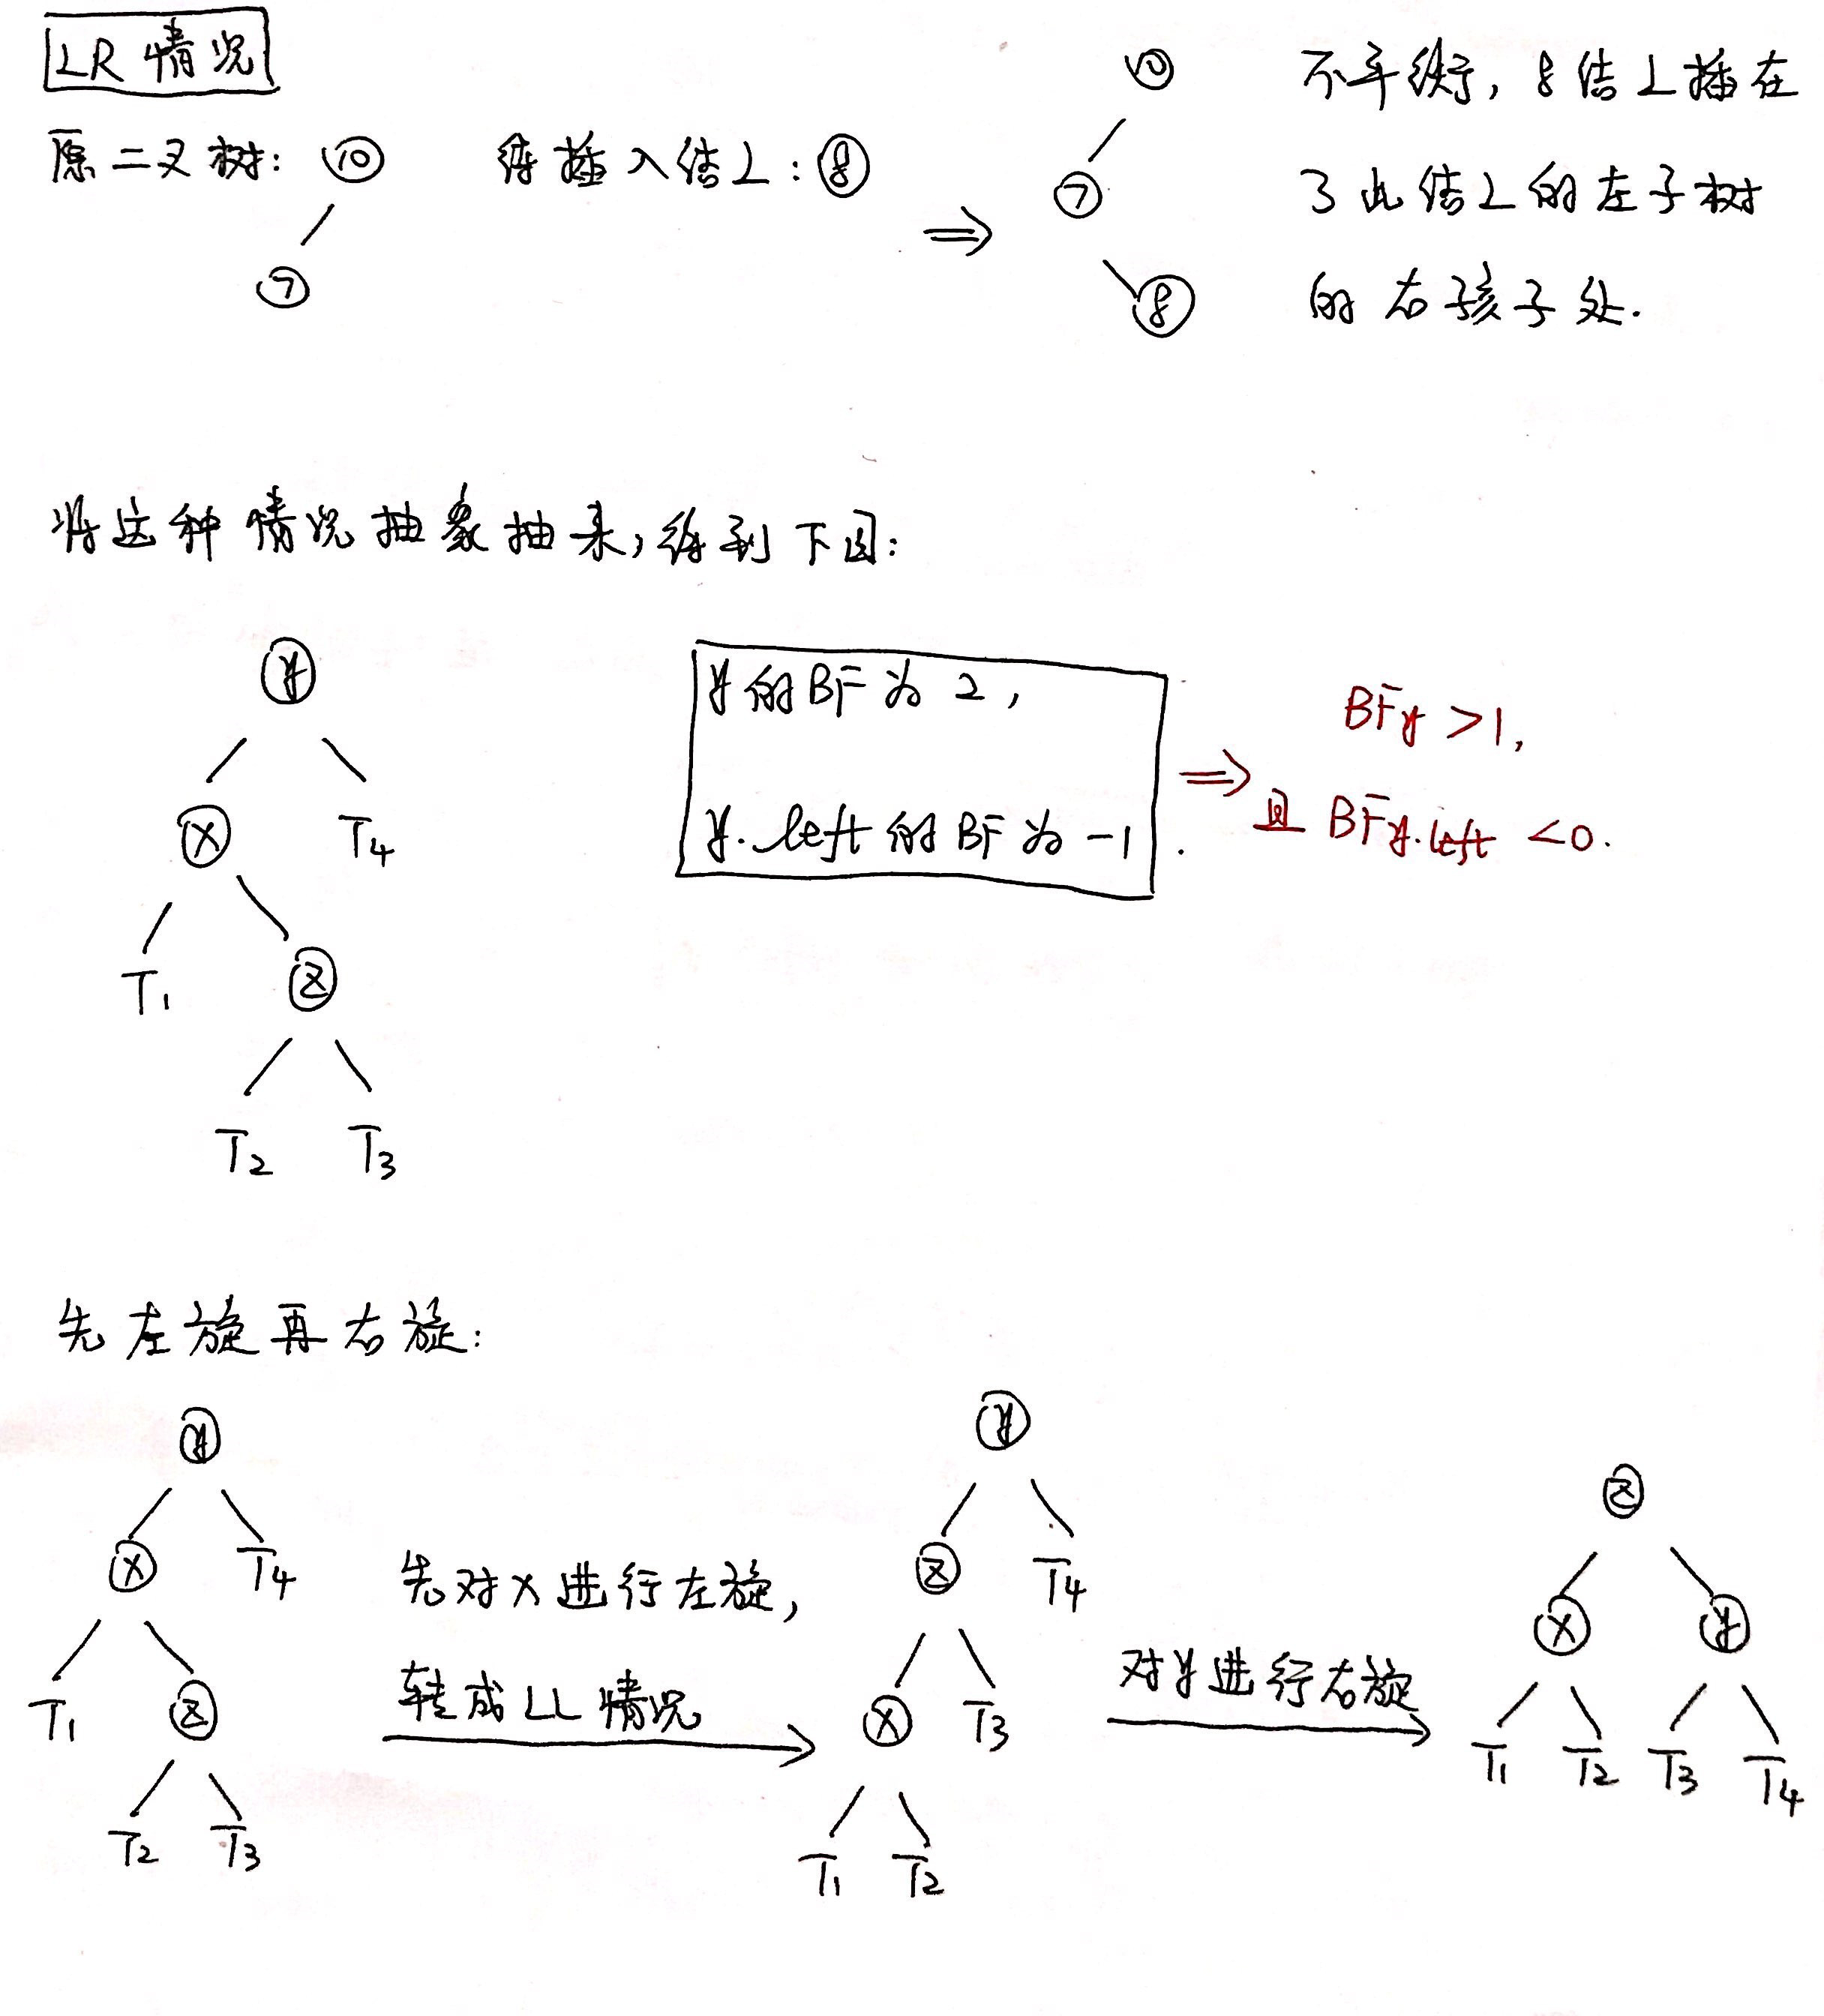 LR 情况
原二叉树: 10 待插入结点: 8
7
⇒
10
7
8
不平衡, 8结点插在
了此结点的左子树
的右孩子处.
将这种情况抽象抽来, 得到下图:
y
x T4
T1 z
T2 T3
y的BF为 2,
y.left的BF为 -1.
⇒
BFy >1,
且 BFy.left <0.
先左旋再右旋:
y
x T4
T1 z
T2 T3
先对x进行左旋,
转成LL情况
y
z T4
x T3
T1 T2
对y进行右旋
z
x y
T1 T2 T3 T4